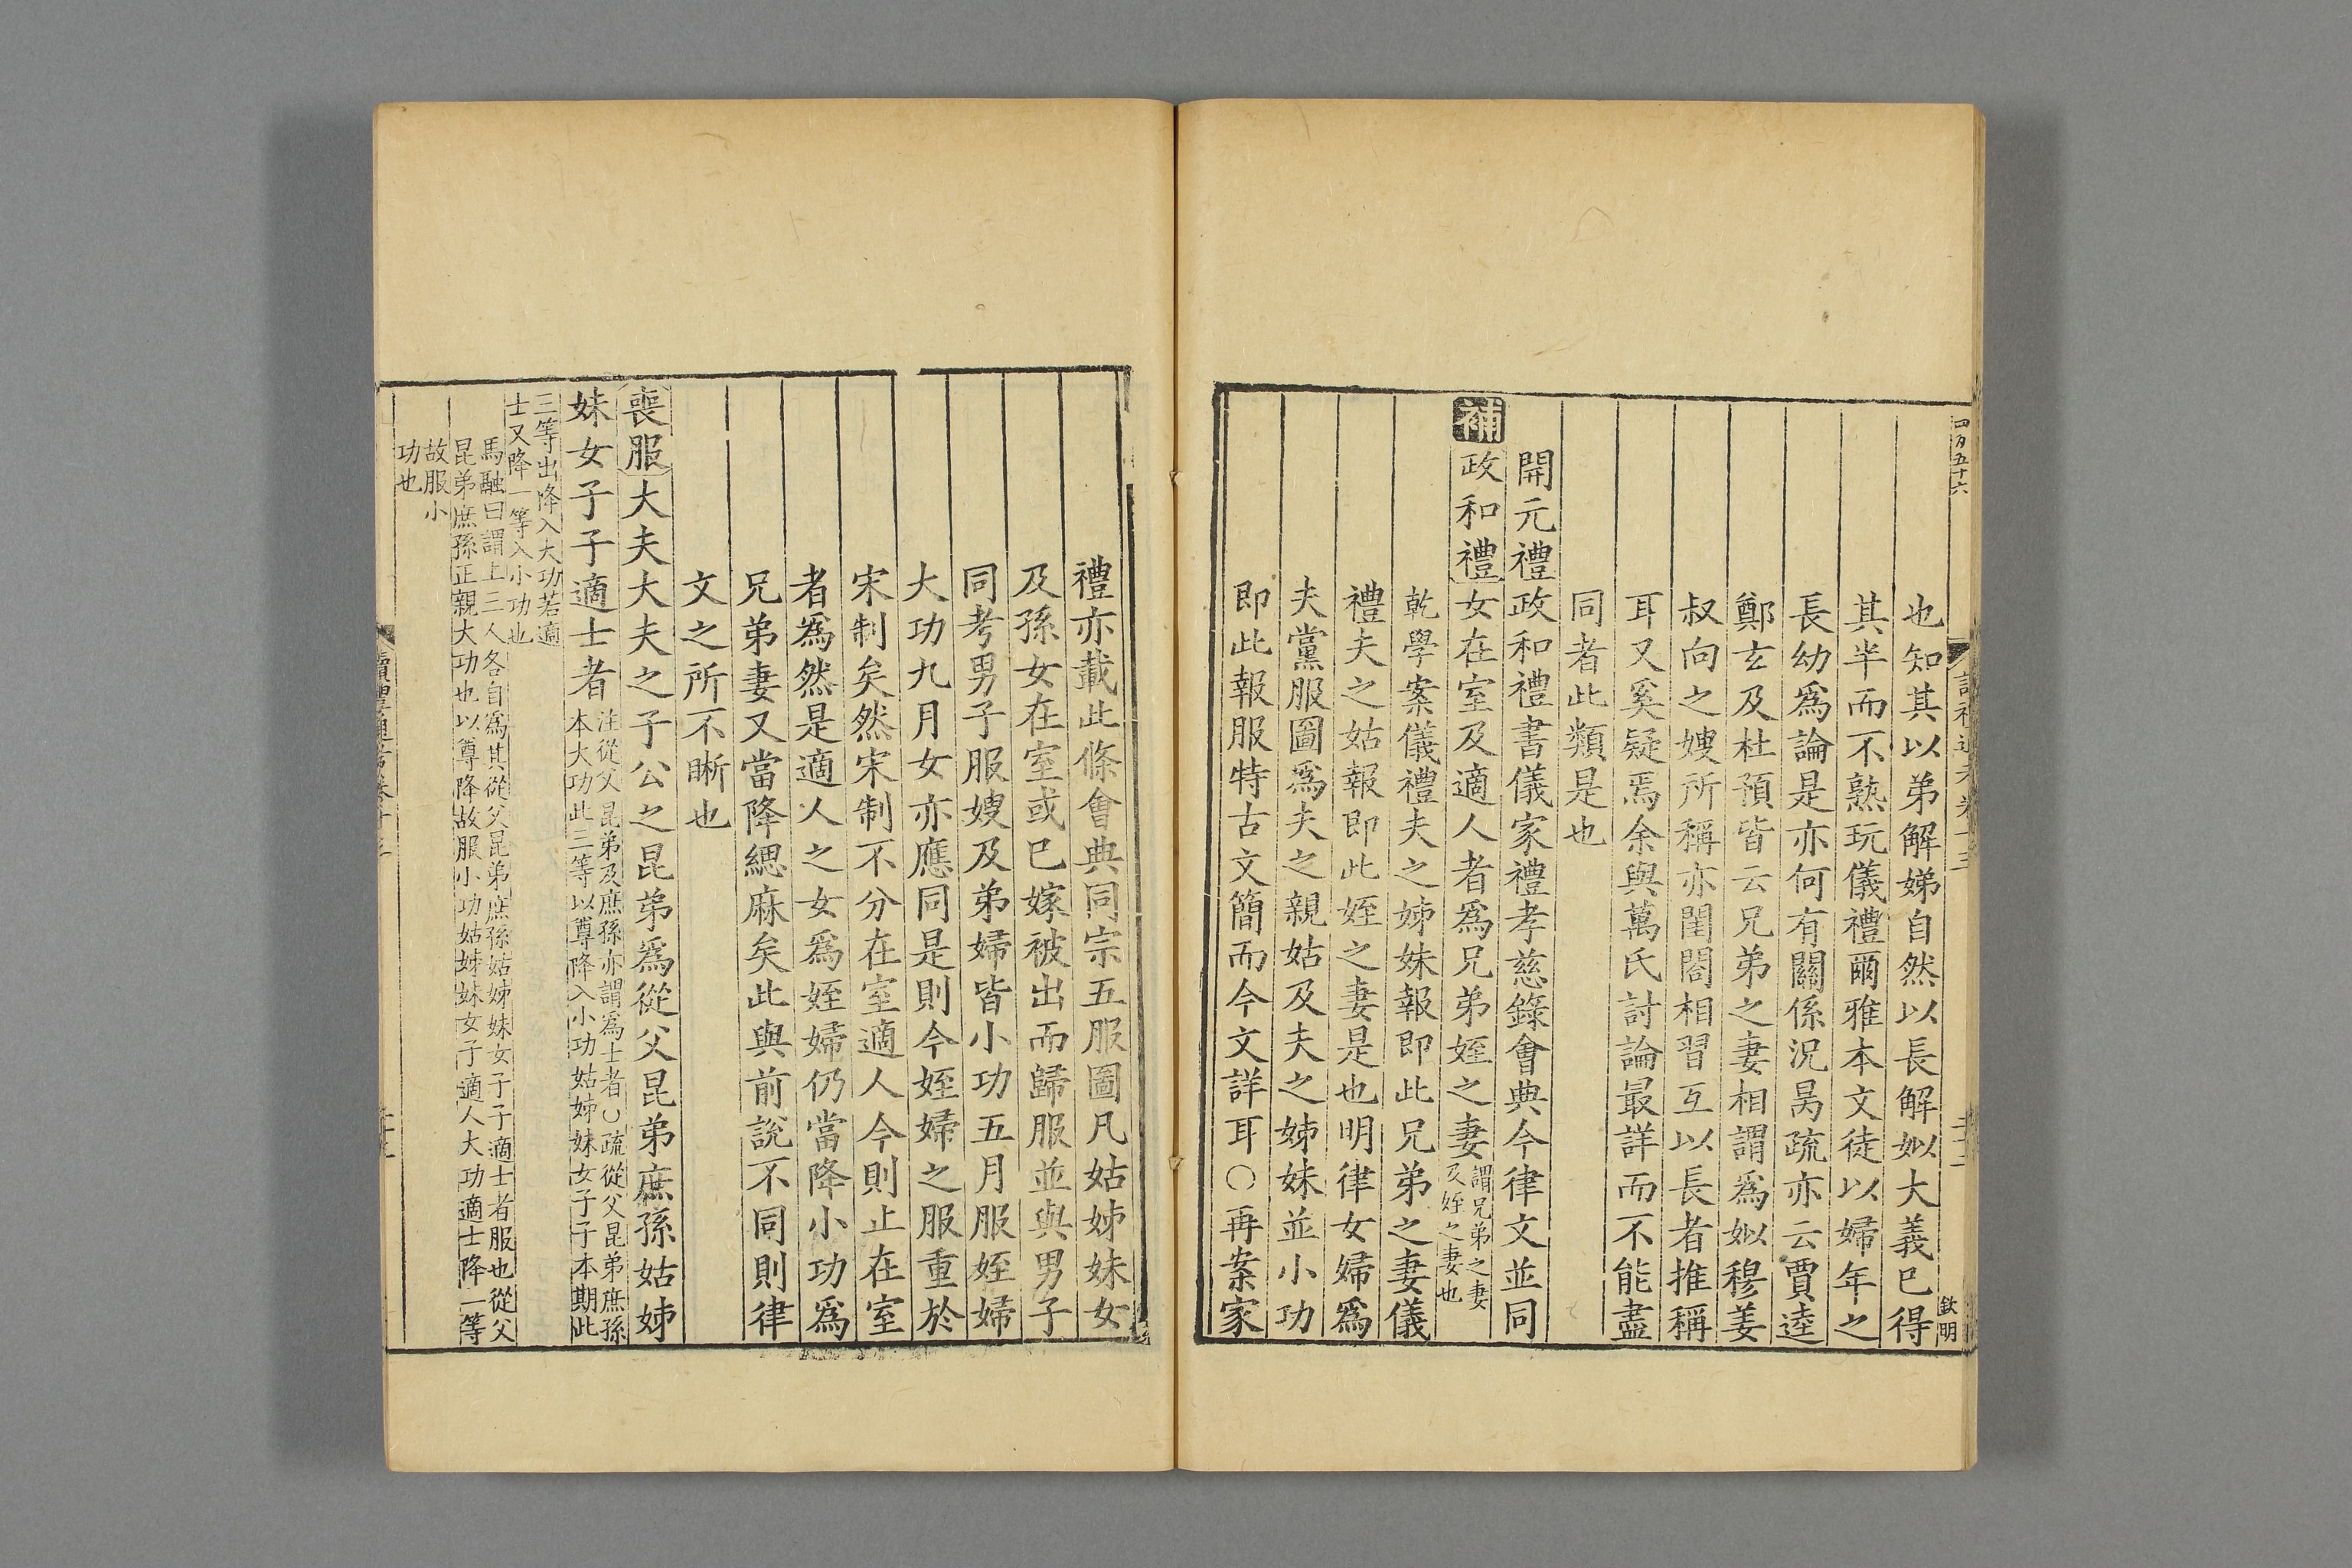 四百五十六
卷十三
欽明
也知其以弟解娣自然以長解姒大義已得
其半而不熟玩儀禮爾雅本文徒以婦年之
長幼爲論是亦何有關係況昺疏亦云賈逵
鄭玄及杜預皆云兄弟之妻相謂爲姒穆姜
叔向之嫂所稱亦閨閤相習互以長者推稱
耳又奚疑焉余與萬氏討論最詳而不能盡
同者此類是也
開元禮政和禮書儀家禮孝慈錄會典今律文並同
補政和禮女在室及適人者爲兄弟姪之妻謂兄弟之妻
及姪之妻也
乾學案儀禮夫之姊妹報即此兄弟之妻儀
禮夫之姑報即此姪之妻是也明律女婦爲
夫黨服圖爲夫之親姑及夫之姊妹並小功
即此報服特古文簡而今文詳耳○再案家
禮亦載此條會典同宗五服圖凡姑姊妹女
及孫女在室或已嫁被出而歸服並與男子
同考男子服嫂及弟婦皆小功五月服姪婦
大功九月女亦應同是則今姪婦之服重於
宋制矣然宋制不分在室適人今則止在室
者爲然是適人之女爲姪婦仍當降小功爲
兄弟妻又當降緦麻矣此與前說不同則律
文之所不晰也
喪服大夫大夫之子公之昆弟爲從父昆弟庶孫姑姊
妹女子子適士者注從父昆弟及庶孫亦謂爲士者○疏從父昆弟庶孫
本大功此三等以尊降入小功姑姊妹女子子本期此
三等出降入大功若適
士又降一等入小功也
馬融曰謂上三人各自爲其從父昆弟庶孫姑姊妹女子子適士者服也從父
昆弟庶孫正親大功也以尊降故服小功姑姊妹女子適人大功適士降一等
故服小
功也
讀禮通考卷十三